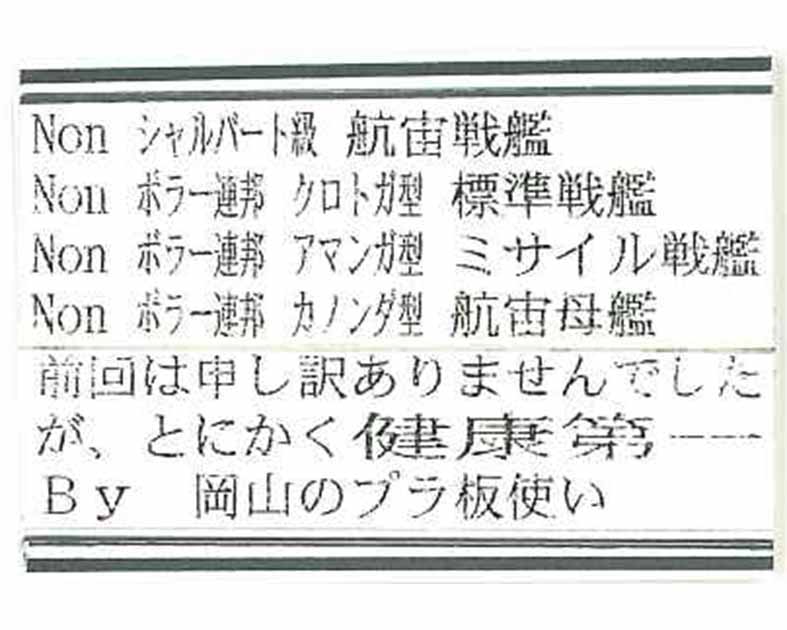 Non シャルバート級 航宙戦艦
Non ボラー連邦 クロトガ型 標準戦艦
Non ボラー連邦 アマンガ型 ミサイル戦艦
Non ボラー連邦 カノンダ型 航宙母艦
前回は申し訳ありませんでした
が、とにかく健康第一
Ｂｙ　岡山のプラ板使い